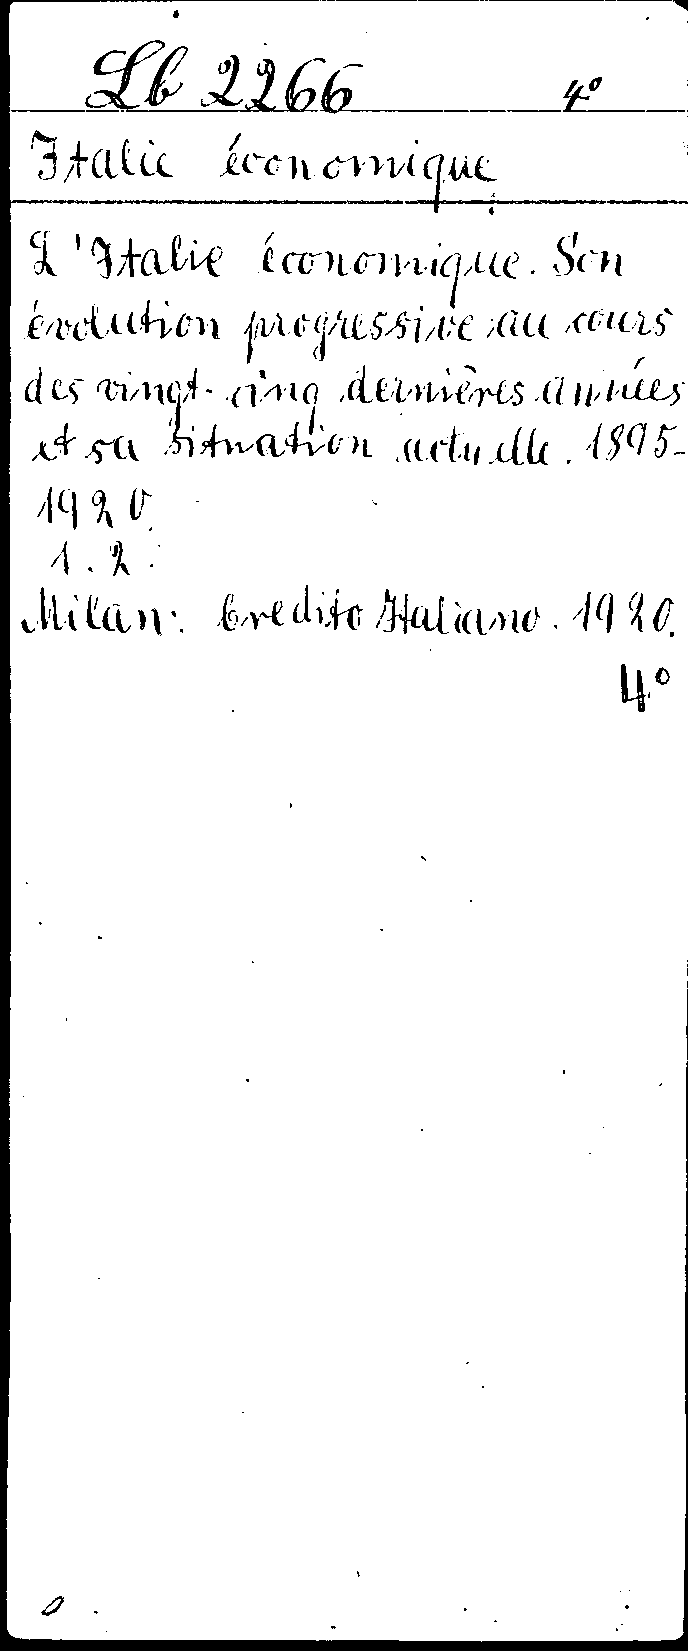 Lb 2266 4°
Italie économique
L'Italie économique. Son
évolution progressive au cours
des vingt-cinq dernières années
et sa situation actuelle. 1895-
1920.
1. 2.
Milan: Credito Italiano. 1920.
4°